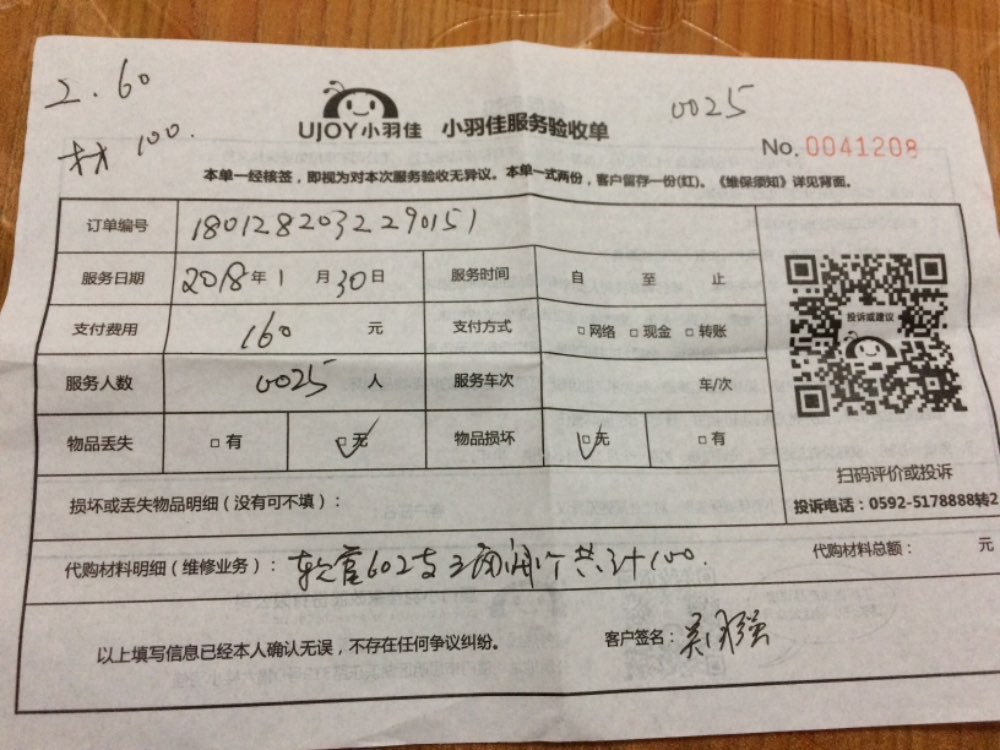 工.60
0025
材 100.
UJOY小羽佳 小羽佳服务验收单
No.0041208
本单一经核签，即视为对本次服务验收无异议。本单一式两份，客户留存一份(红)。《维保须知》详见背面。
订单编号 18012820322290151
服务日期 2018年1月30日 服务时间 自 至 止
支付费用 160 元 支付方式 □网络 □现金 □转账
服务人数 0025 人 服务车次 车/次
物品丢失 □有 □无 物品损坏 □无 □有
投诉或建议
扫码评价或投诉
投诉电话：0592-5178888转2
损坏或丢失物品明细（没有可不填）：
代购材料明细（维修业务）：软管602支三角阀1个共计100.
代购材料总额： 元
以上填写信息已经本人确认无误，不存在任何争议纠纷。
客户签名：吴 强